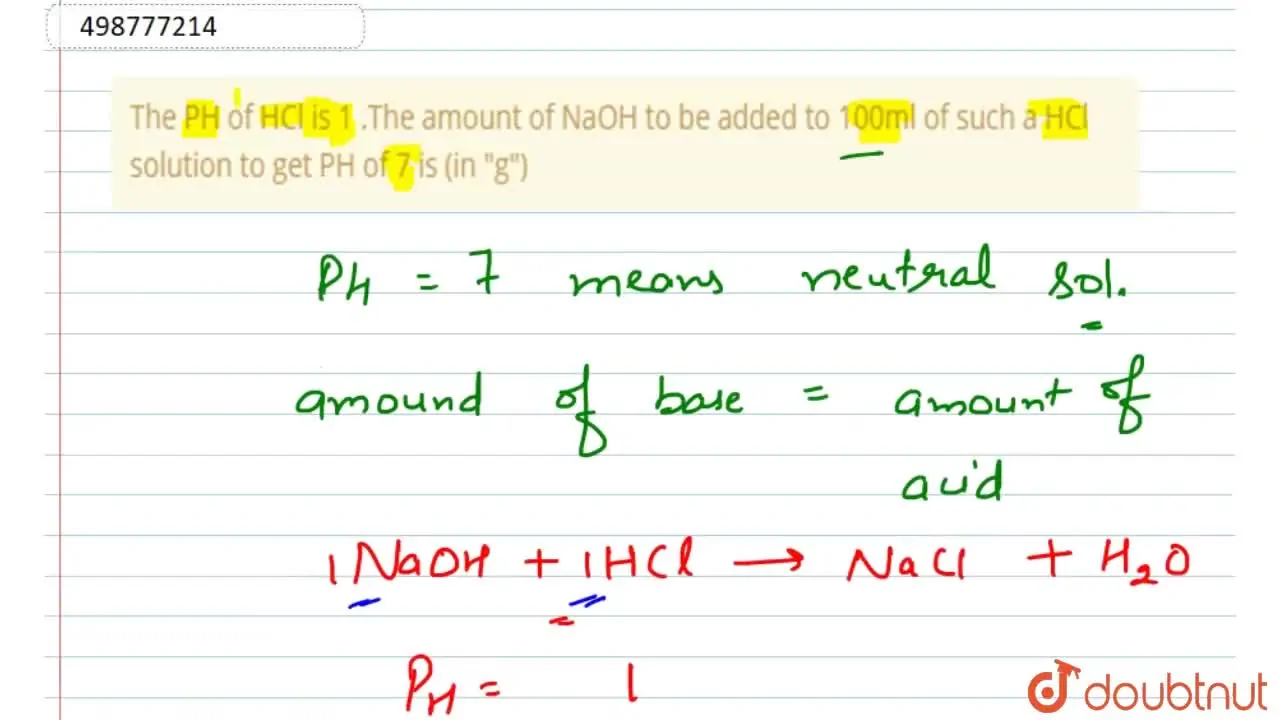 498777214
The PH of HCl is 1 .The amount of NaOH to be added to 100ml of such a HCl
solution to get PH of 7 is (in "g")
PH = 7 means neutral sol.
amound of base = amount of
acid
1NaOH + 1HCl → NaCl + H2O
PH = 1
doubtnut